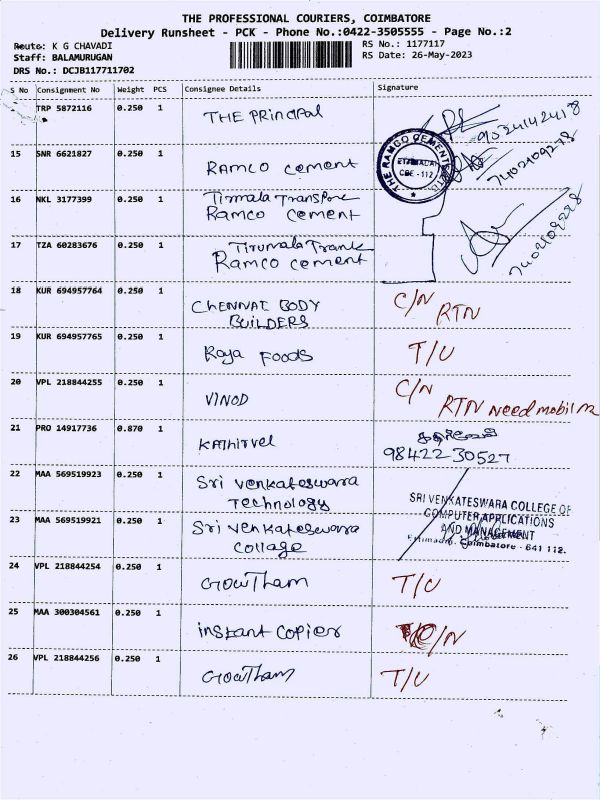 THE PROFESSIONAL COURIERS, COIMBATORE
Delivery Runsheet - PCK - Phone No.:0422-3505555 - Page No.:2
Route: K G CHAVADI
RS No.: 1177117
Staff: BALAMURUGAN
RS Date: 26-May-2023
DRS No.: DCJB117711702
S No Consignment No Weight PCS Consignee Details Signature
TRP 5872116 0.250 1 THE Principal
15 SNR 6621827 0.250 1 Ramco cement
THE RAMCO CEMENTS
CBE - 112
7402109278
16 NKL 3177399 0.250 1 Tirmala Transpore
Ramco cement
17 TZA 60283676 0.250 1 Tirumala Trank
Ramco cement
18 KUR 694957764 0.250 1 CHENNAI BODY C/N
BUILDERS RTN
19 KUR 694957765 0.250 1 Roja FOODS T/U
20 VPL 218844255 0.250 1 VINOD C/N
RTN need mobil no
21 PRO 14917736 0.870 1 Kathirvel
98422 30527
22 MAA 569519923 0.250 1 Sri venkateswara
Technology
SRI VENKATESWARA COLLEGE OF
COMPUTER APPLICATIONS
AND MANAGEMENT
Ettimadai, Coimbatore - 641 112.
23 MAA 569519921 0.250 1 Sri venkateswara
collage
24 VPL 218844254 0.250 1 GowTham T/U
25 MAA 300304561 0.250 1 instant copier C/N
26 VPL 218844256 0.250 1 GowTham T/U